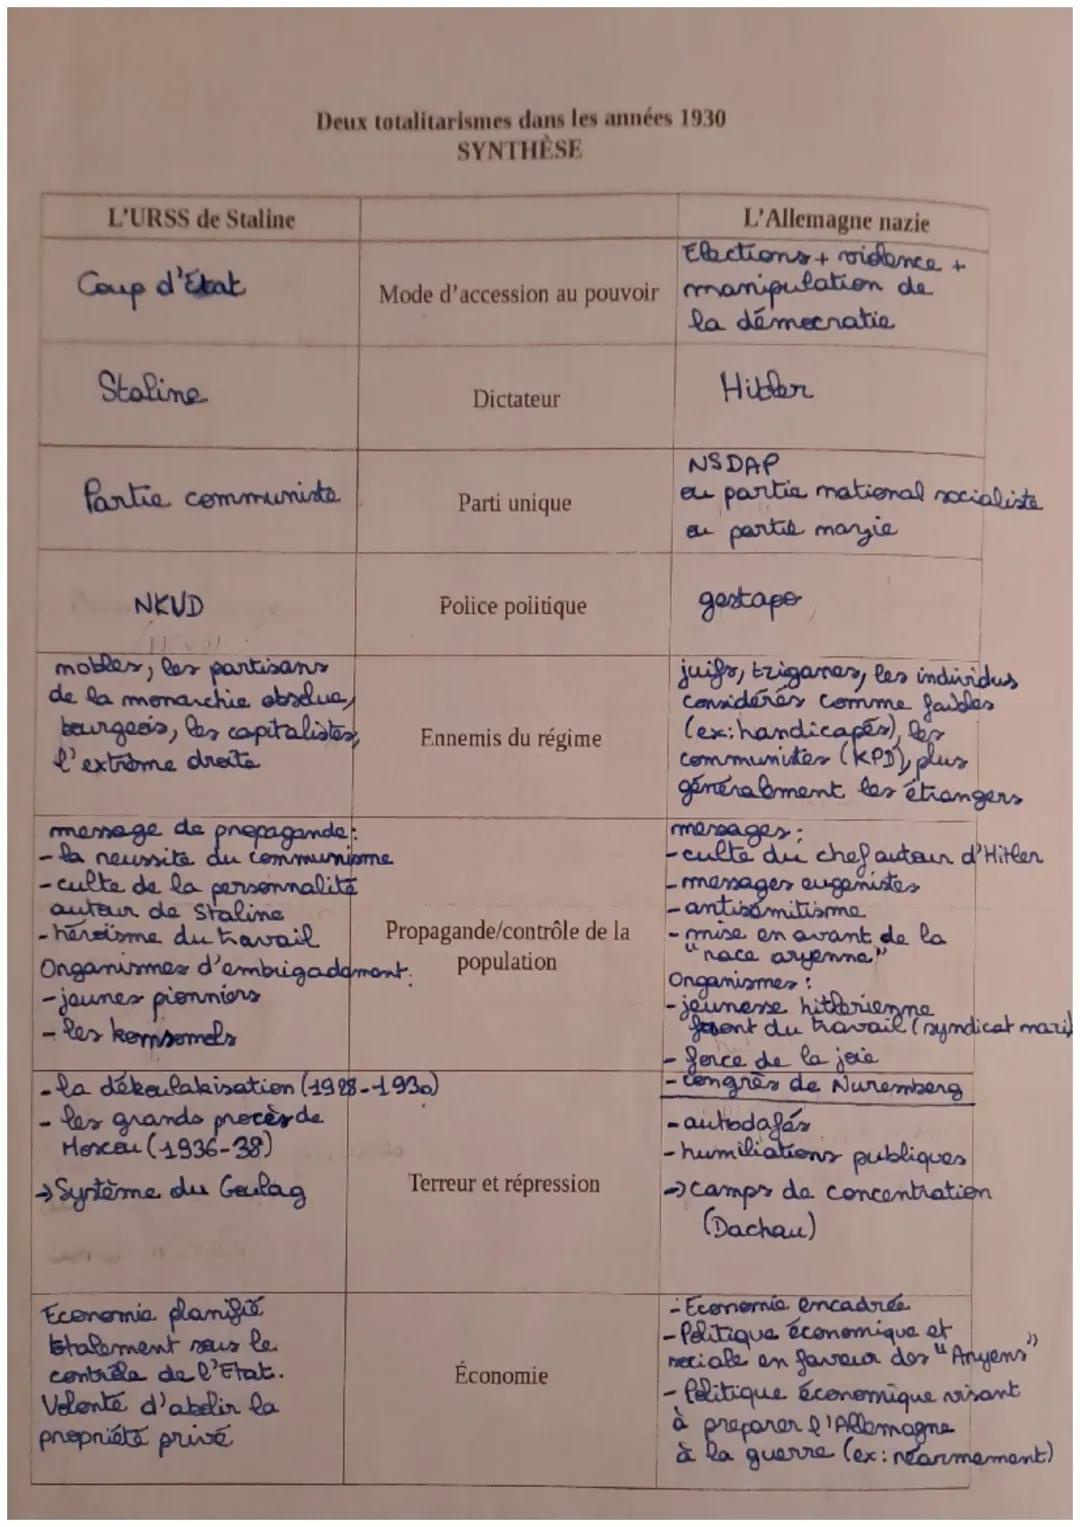 Deux totalitarismes dans les années 1930
SYNTHÈSE
L'URSS de Staline
L'Allemagne nazie
Coup d'Etat
Mode d'accession au pouvoir
Elections + violence +
manipulation de
la démocratie
Staline
Dictateur
Hitler
Partie communiste
Parti unique
NSDAP
ou partie national socialiste
ou partie nazie
NKVD
Police politique
gestapo
nobles, les partisans
de la monarchie absolue,
bourgeois, les capitalistes,
l'extrême droite
Ennemis du régime
juifs, tziganes, les individus
considérés comme faibles
(ex: handicapés), les
communistes (KPD), plus
généralement les étrangers
message de propagande:
- la reussite du communisme
- culte de la personnalité
autour de Staline
- héroïsme du travail
Organismes d'embrigadement:
- jeunes pionniers
- les komsomols
Propagande/contrôle de la
population
messages:
- culte du chef autour d'Hitler
- messages eugenistes
- antisémitisme
- mise en avant de la
"race aryenne"
Organismes:
- jeunesse hitlerienne
front du travail (syndicat nazi)
- force de la joie
- congrès de Nuremberg
- la dékoulakisation (1928-1930)
- les grands procès de
Moscou (1936-38)
→ Système du Goulag
Terreur et répression
- autodafés
- humiliations publiques
→ camps de concentration
(Dachau)
Economie planifié
totalement sous le
contrôle de l'Etat.
Volonté d'abolir la
propriété privé
Économie
- Economie encadrée
- Politique économique et
sociale en faveur des "Aryens"
- Politique économique visant
à préparer l'Allemagne
à la guerre (ex: réarmement)